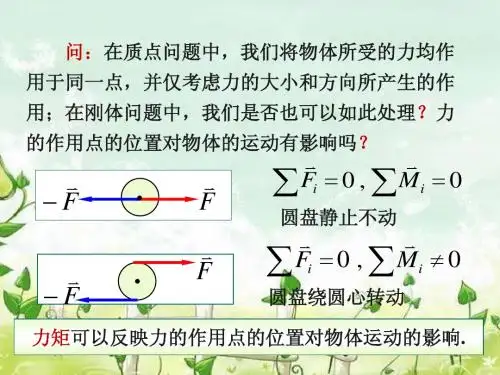 问：在质点问题中，我们将物体所受的力均作
用于同一点，并仅考虑力的大小和方向所产生的作
用；在刚体问题中，我们是否也可以如此处理？力
的作用点的位置对物体的运动有影响吗？
−F⃗ F⃗ ∑F⃗ᵢ = 0 , ∑M⃗ᵢ = 0
圆盘静止不动
−F⃗ F⃗ ∑F⃗ᵢ = 0 , ∑M⃗ᵢ ≠ 0
圆盘绕圆心转动
力矩可以反映力的作用点的位置对物体运动的影响.